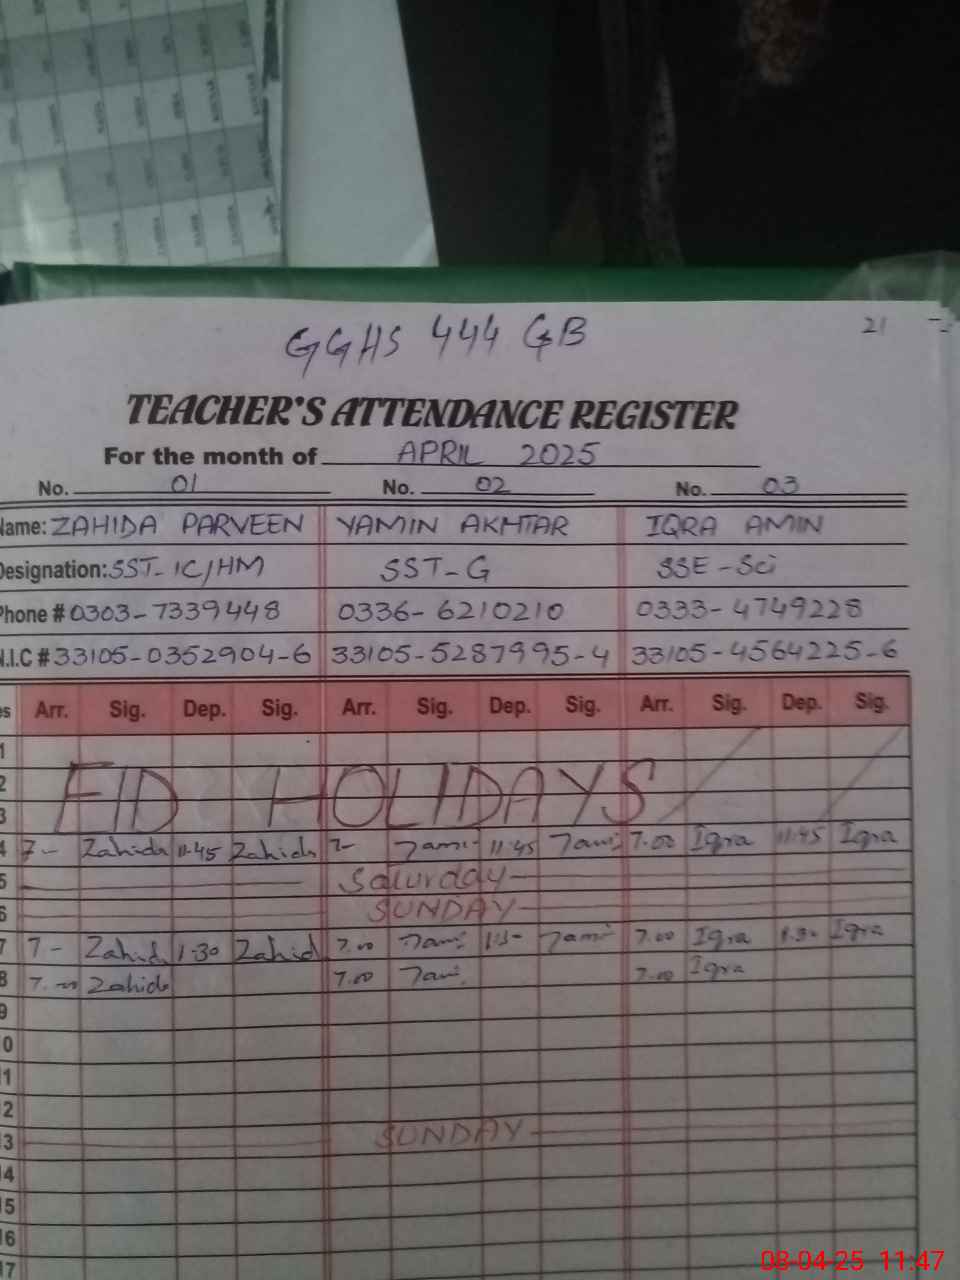 GGHS 444 GB
21
TEACHER'S ATTENDANCE REGISTER
For the month of APRIL 2025
No. 01 No. 02 No. 03
Name: ZAHIDA PARVEEN YAMIN AKHTAR IQRA AMIN
Designation: SST-IC/HM SST-G SSE-Sci
Phone # 0303-7339448 0336-6210210 0333-4749228
N.I.C # 33105-0352904-6 33105-5287995-4 33105-4564225-6
es Arr. Sig. Dep. Sig. Arr. Sig. Dep. Sig. Arr. Sig. Dep. Sig.
1
2 EID HOLIDAYS
3
4 7- Zahida 11.45 Zahida 7- 11.45 7.00 Iqra 11.45 Iqra
5 Saturday
6 SUNDAY
7 7- Zahid 1.30 Zahid 7.00 7.00 Iqra 1.30 Iqra
8 7.00 Zahida 7.00 7.00 Iqra
9
0
11
12
13 SUNDAY
14
15
16
17
08-04-25 11:47